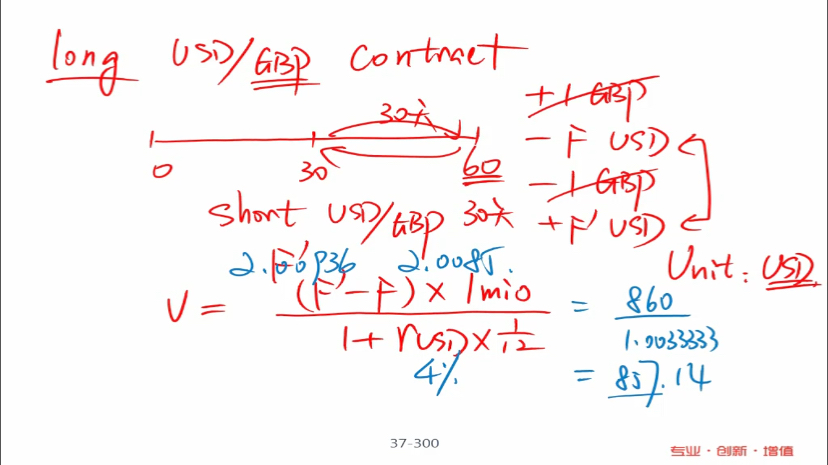 long USD/GBP contract
+1 GBP
30天
- F USD
0 30 60
- 1 GBP
short USD/GBP 30天 + F' USD
2.00936 2.0085.
Unit: USD
V = (F' - F) × 1mio / 1 + rUSD × 1/12 = 860 / 1.0033333
4%
= 857.14
37-300
专业·创新·增值